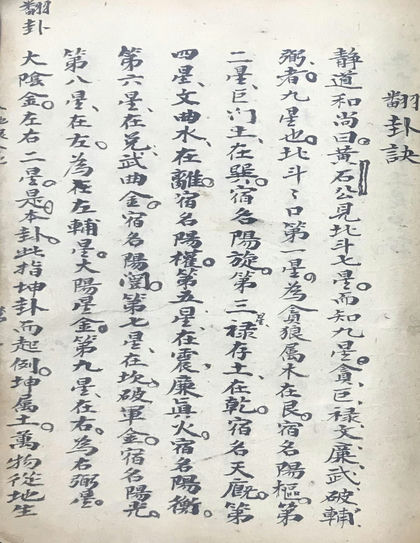 翻卦訣
静道和尚曰。黃石公見北斗七星。而知九星。貪、巨、祿、文、廉、武、破、輔
弼、者。九星也。北斗〻口第一星。為貪狼屬木在艮。宿名陽樞。第
二星、巨门土、在巽。宿名陽旋。第三星祿存土、在乾。宿名天廐。第
四星、文曲水、在離。宿名陽權。第五星、在震、廉眞火。宿名陽衡。
第六星、在兌、武曲金。宿名陽闓。第七星、在坎、破軍金。宿名陽光。
第八星、在左。為左輔星。大陽星金。第九星、在右。為右弼星。
大陰金。左右二星。是本卦。此指坤卦而起例。坤属土。萬物從地生
翻卦